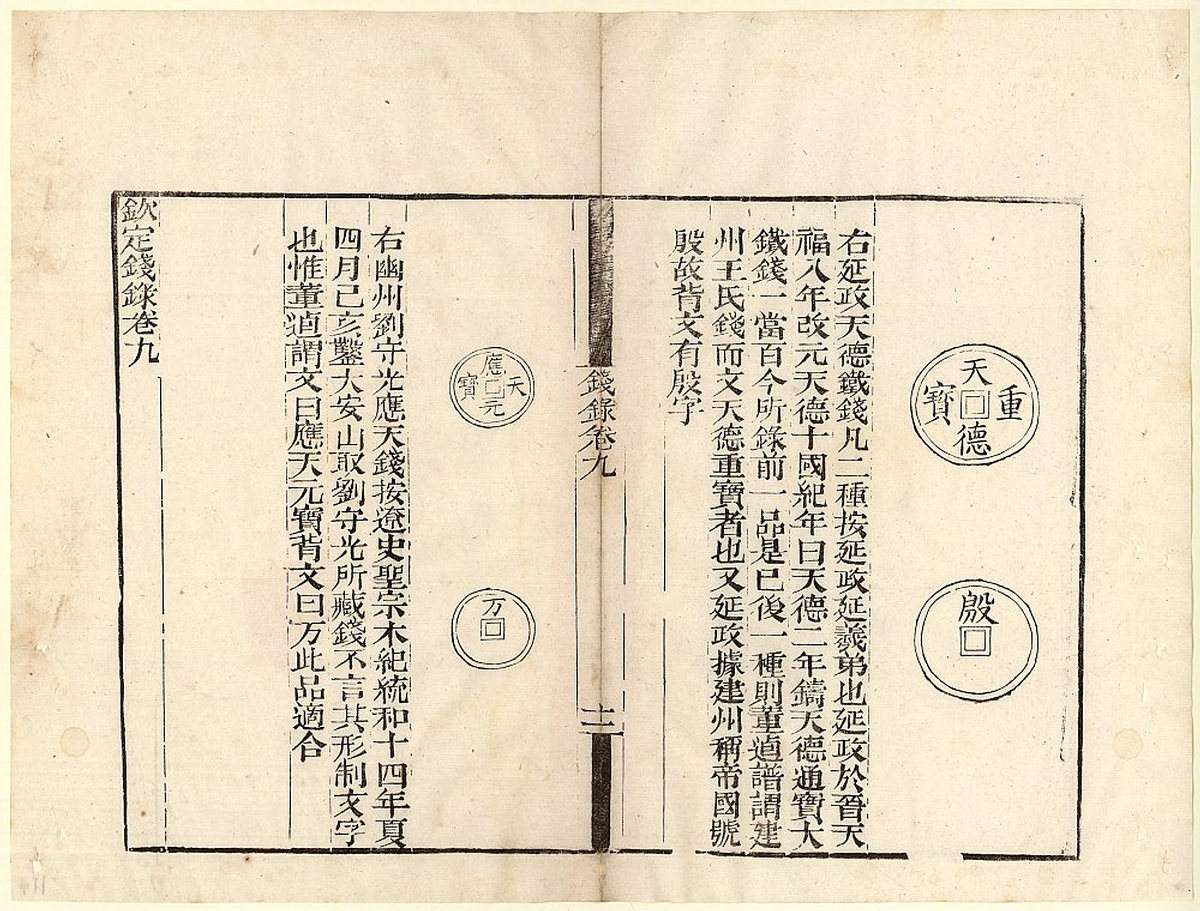 天德重寶
殷
右延政天德鐵錢凡二種按延政延羲弟也延政於晉天
福八年改元天德十國紀年曰天德二年鑄天德通寶大
鐵錢一當百今所錄前一品是已後一種則董逌譜謂建
州王氏錢而文天德重寶者也又延政據建州稱帝國號
殷故背文有殷字
錢錄卷九
十一
應天元寶
万
右幽州劉守光應天錢按遼史聖宗木紀統和十四年夏
四月己亥鑿大安山取劉守光所藏錢不言其形制文字
也惟董逌謂文曰應天元寶背文曰万此品適合
欽定錢錄卷九